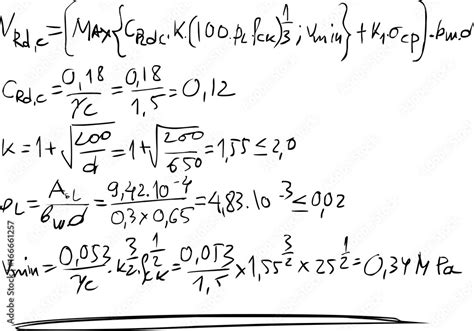 V_Rd,c = (MAX{C_Rd,c · K · (100 · ρ_L · f_ck)^1/3 ; υmin} + K_1 · σ_cp) · b_w · d
C_Rd,c = 0,18/γ_c = 0,18/1,5 = 0,12
K = 1 + √(200/d) = 1 + √(200/650) = 1,55 ≤ 2,0
ρ_L = A_sL/(b_w d) = 9,42 · 10^-4/(0,3 × 0,65) = 4,83 · 10^-3 ≤ 0,02
υmin = 0,053/γ_c · K^3/2 · f_ck^1/2 = 0,053/1,5 × 1,55^3/2 × 25^1/2 = 0,34 MPa